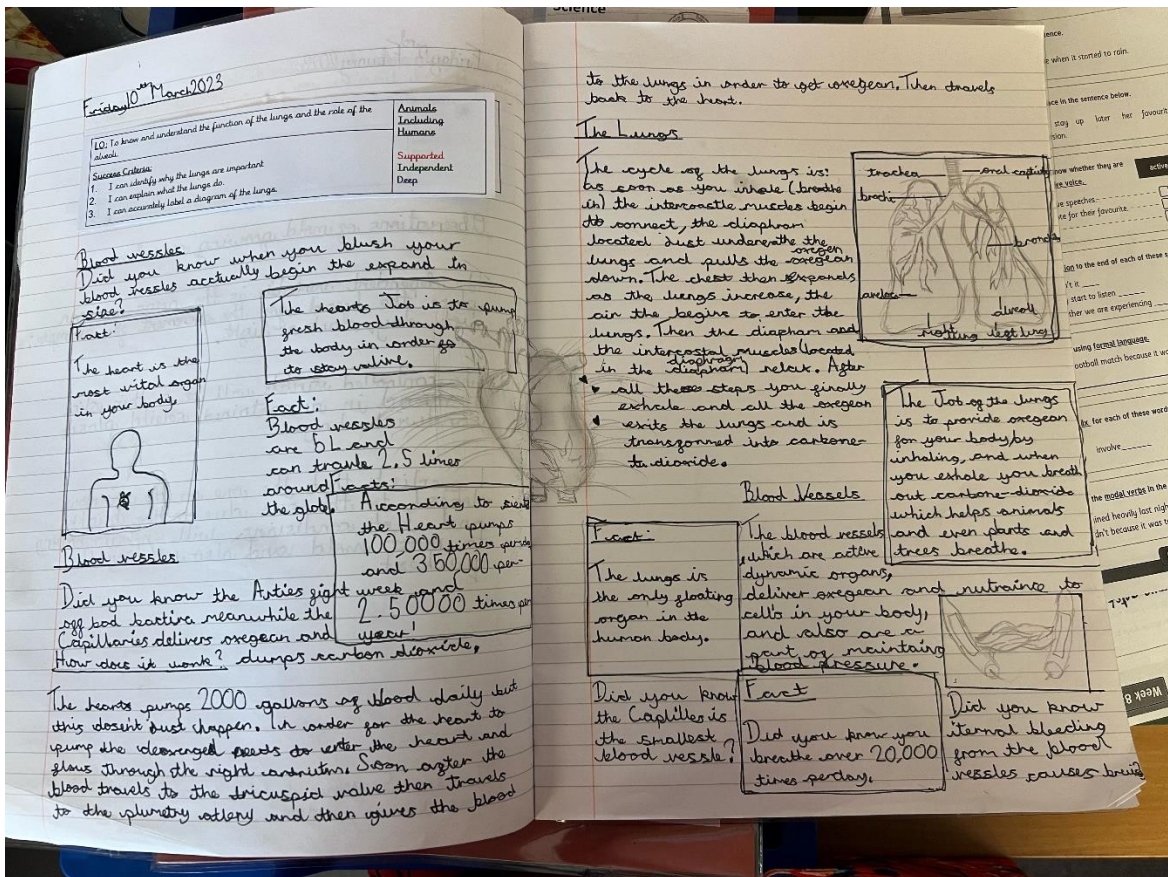 Friday 10th March 2023
LO: To know and understand the function of the lungs and the role of the
alveoli.
Success Criteria:
1. I can identify why the lungs are important
2. I can explain what the lungs do.
3. I can accurately label a diagram of the lungs.
Animals
Including
Humans
Supported
Independent
Deep
Blood vessles
Did you know when you blush your
blood vessles acctually begin the expand in
size?
Fact:
The heart is the
most vital organ
in your body
The hearts Job is to pump
fresh blood through
the body in order
to stay alive.
Fact:
Blood vessles
are 5L and
can travle 2.5 times
around
the globe.
Facts:
According to
the Heart pumps
100,000 times
and 350,000 per-
week and
2.50000 times per
year!
Blood vessles
Did you know the Arties fight
off bad bactira meanwhile the
Capillaries delivers oxegean and
dumps carbon dioxide.
How does it work?
The hearts pumps 2000 gallons of blood daily but
this dosen't Just happen. In order for the heart to
pump the needs to enter the heart and
flows through the right Soon after the
blood travels to the tricuspid valve then travels
to the and then gives the blood
to the lungs in order to get oxegean. Then travels
back to the heart.
The Lungs
The cycle of the lungs is:
as soon as you inhale (breathe
in) the intercoastle muscles begin
to connect, the diaphram
located Just underneath the
lungs and pulls the oxegean
oxegen
down. The chest then expands
as the lungs increase, the
air the begins to enter the
lungs. Then the diapham and
the intercostal muscles (located
in the diapham) relax. After
diaphragm
all these steps you finally
exhale and all the oxegean
exits the lungs and is
transformed into carbone-
dioxide.
trachea
brochi
bronchi
alveoli
left lung
The Job of the lungs
is to provide oxegean
for your body by
inhaling, and when
you exhale you breath
out carbone-dioxide
which helps animals
and even plants and
trees breathe.
Blood Vessels
Fact:
The lungs is
the only floating
organ in the
human body.
The blood vessels
which are active
dynamic organs,
deliver oxegean and nutraince to
cells in your body,
and also are a
part of maintaing
blood pressure.
Did you know
the Capilles is
the smallest
blood vessle?
Fact
Did you know you
breathe over 20,000
times perday.
Did you know
iternal bleeding
from the blood
vessles causes
Science
when it started to rain.
in the sentence below.
stay up later her favourite
know whether they are
active
speeches
for their favourite.
to the end of each of these
start to listen
ther we are experiencing
using formal language.
ootball match because it
for each of these
involve
the modal verbs in the
ined heavily last
dn't because it was
Week 8